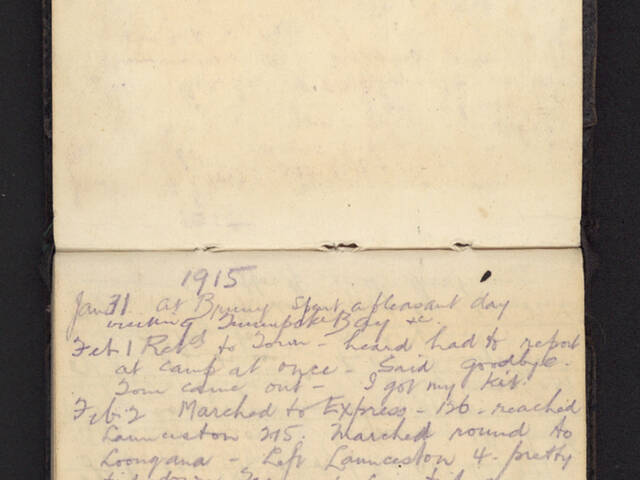 1915
Jan 31 at Bruny spent a pleasant day
visiting Trumpeter Bay &c.
Feb. 1 Retd to Town - heard had to report
at camp at once - Said goodbye.
Tom came out - I got my kit.
Feb. 2 Marched to Express - 126 - reached
Launceston 215. Marched round to
Loongana - Left Launceston 4 - pretty